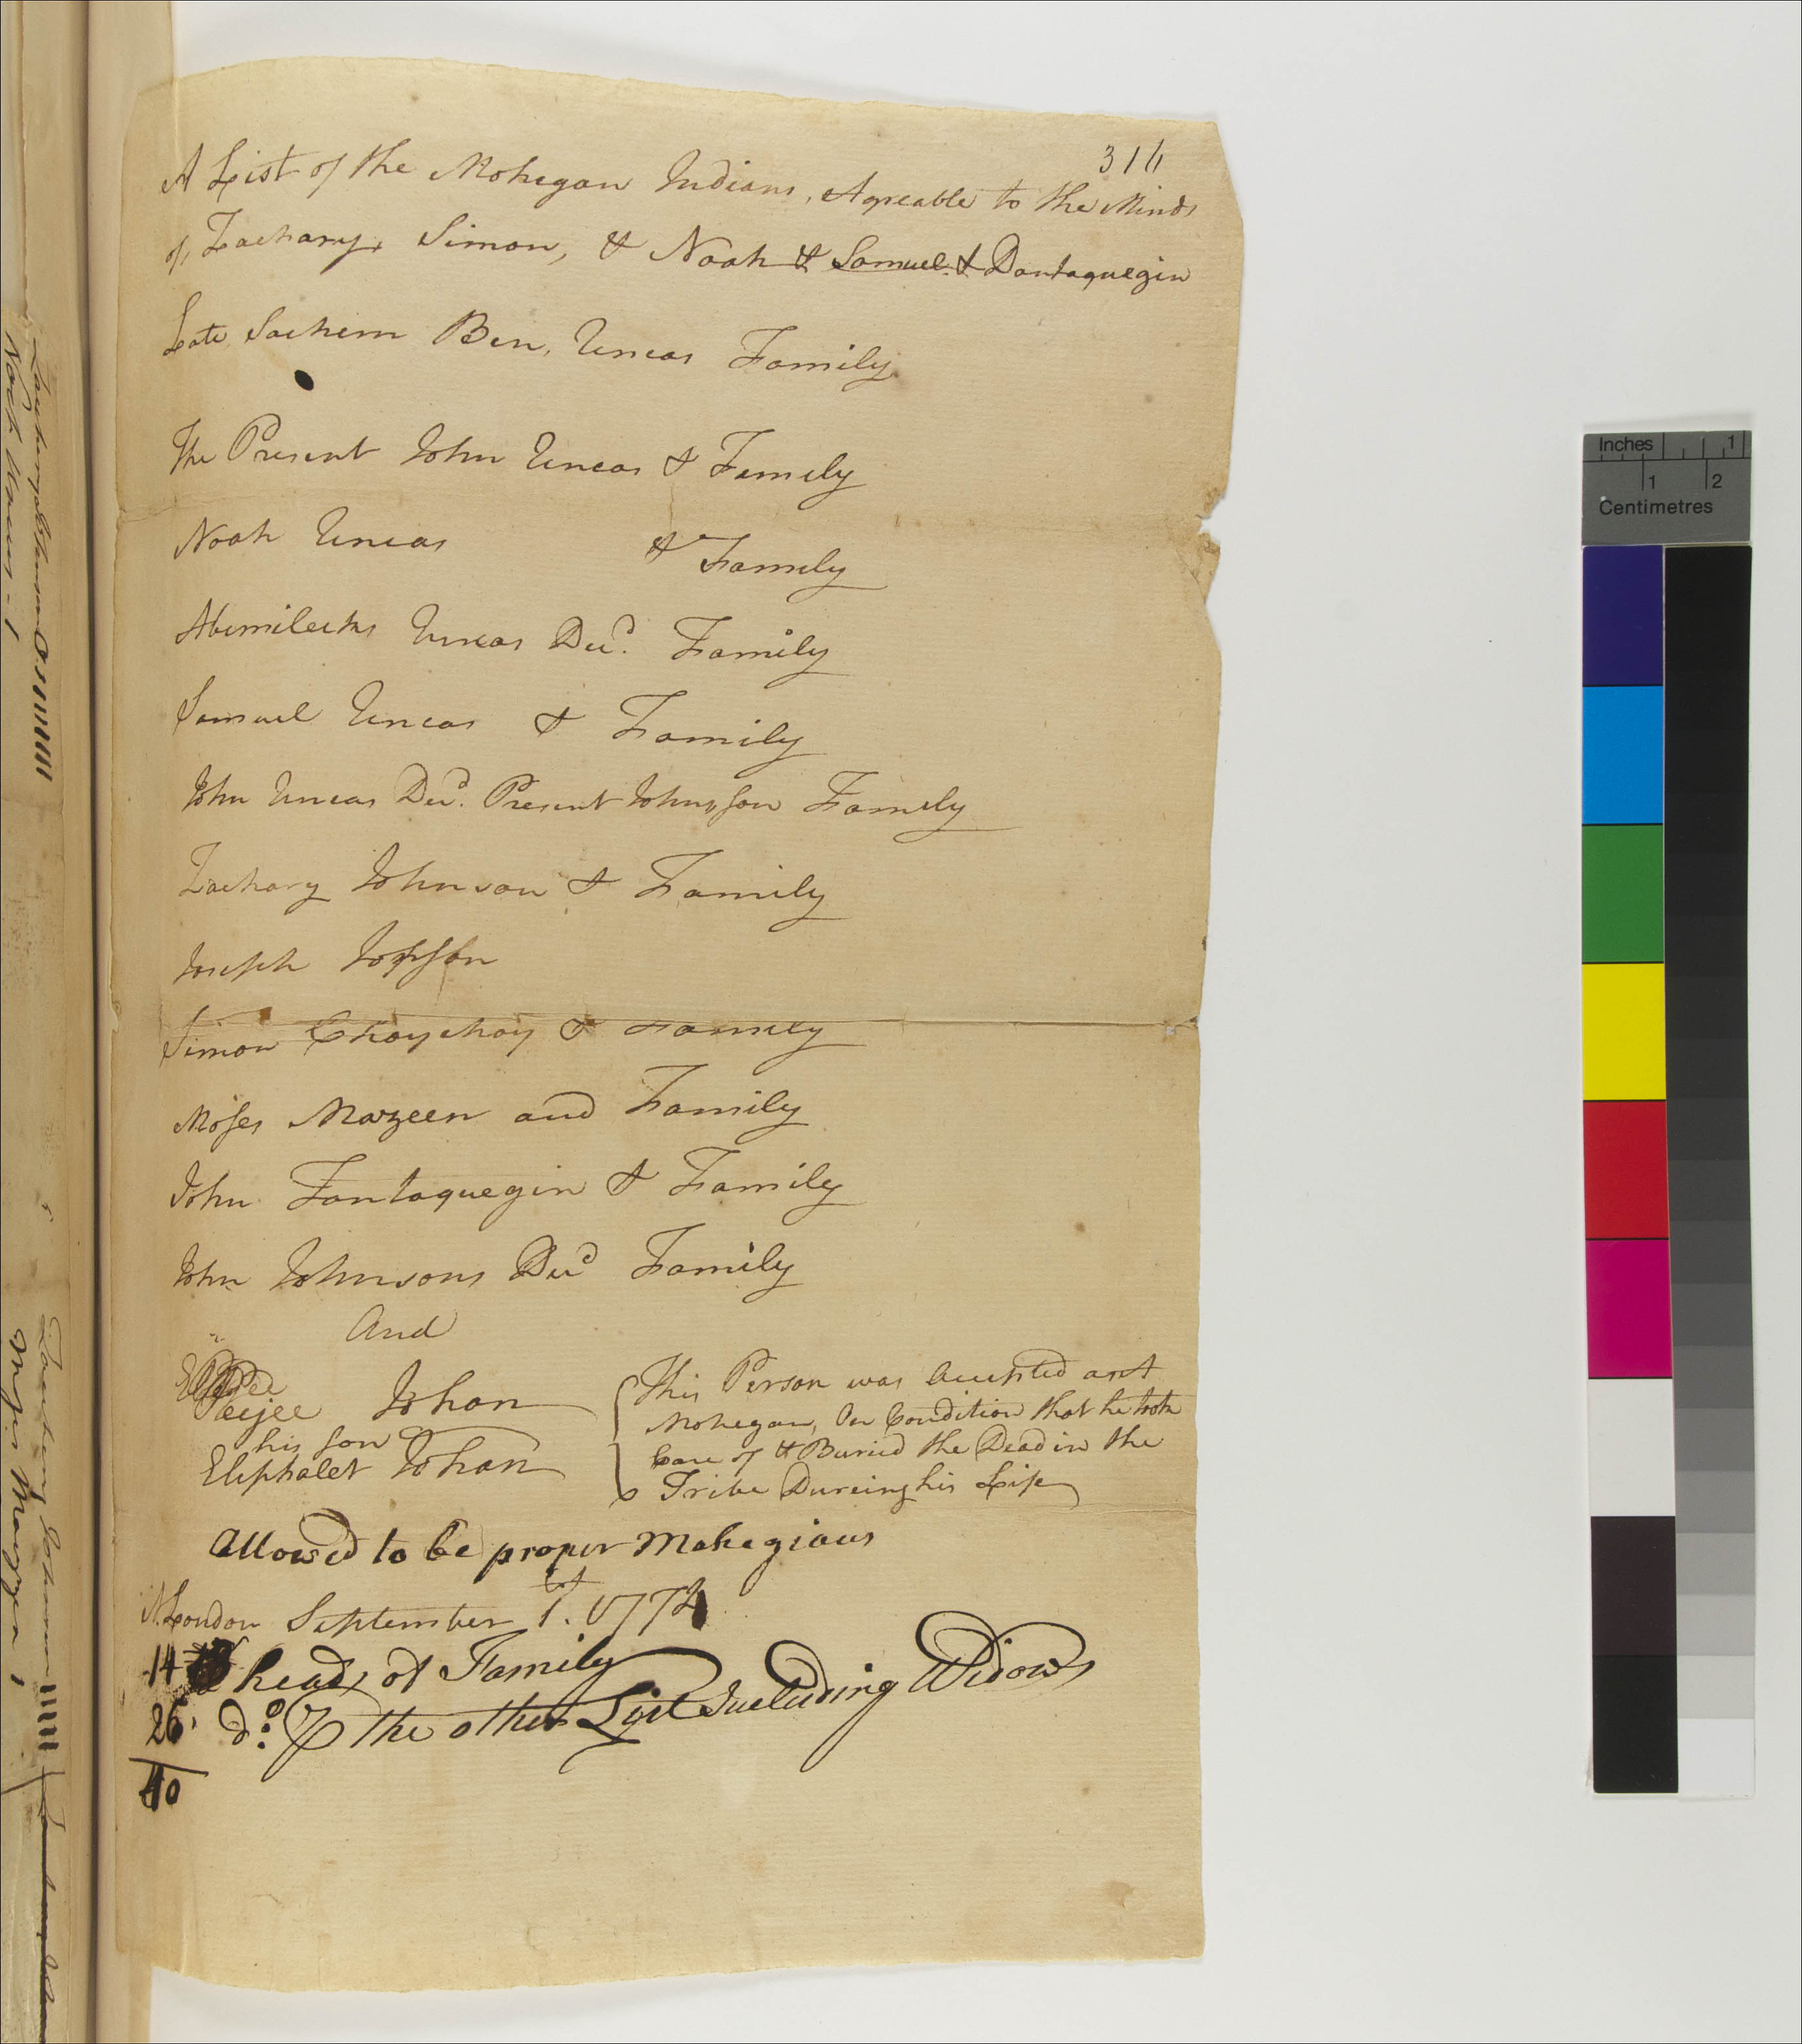 311
A List of the Mohegan Indians, Agreable to the Minds
of, Zachary, Simon, & Noah & Samuel. & Dantaquegin
Late Sachem Ben, Uncas Family
The Present John Uncas & Family
Noah Uncas & Family
Abimilechs Uncas Decd. Family
Samuel Uncas & Family
John Uncas Decd. Present Johns son Family
Zachary Johnson & Family
Joseph
Simon Choychoy & Family
Moses Mazeen and Family
John Tantaquegin & Family
John Johnsons Decd Family
And
Peejee Johan
his son
Eliphalet Johan
This Person was Accepted as
Mohegan, On Condition that he took
Care of & Buried the Dead in the
Tribe Dureing his Life
Allowed to be proper Mohegians
N. London September 1st. 1774
14 heads of Family
26 do. of the other List Including Widows
40
Zachary Johnson
Noah Uncas - 1
Zachery Johnson
Moses Mazzen 1